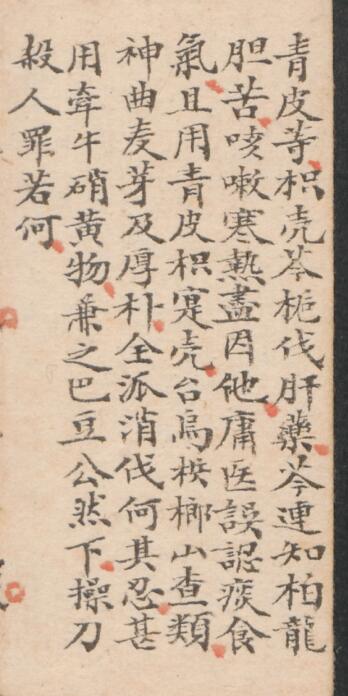 青皮等枳壳芩栀伐肝藥芩連知柏龍
胆苦咳嗽寒熱盡因他庸医誤認痰食
氣且用青皮枳寔壳台烏梹榔山查類
神曲麦芽及厚朴全派消伐何其忍甚
用牽牛硝黄物兼之巴豆公然下操刀
殺人罪若何